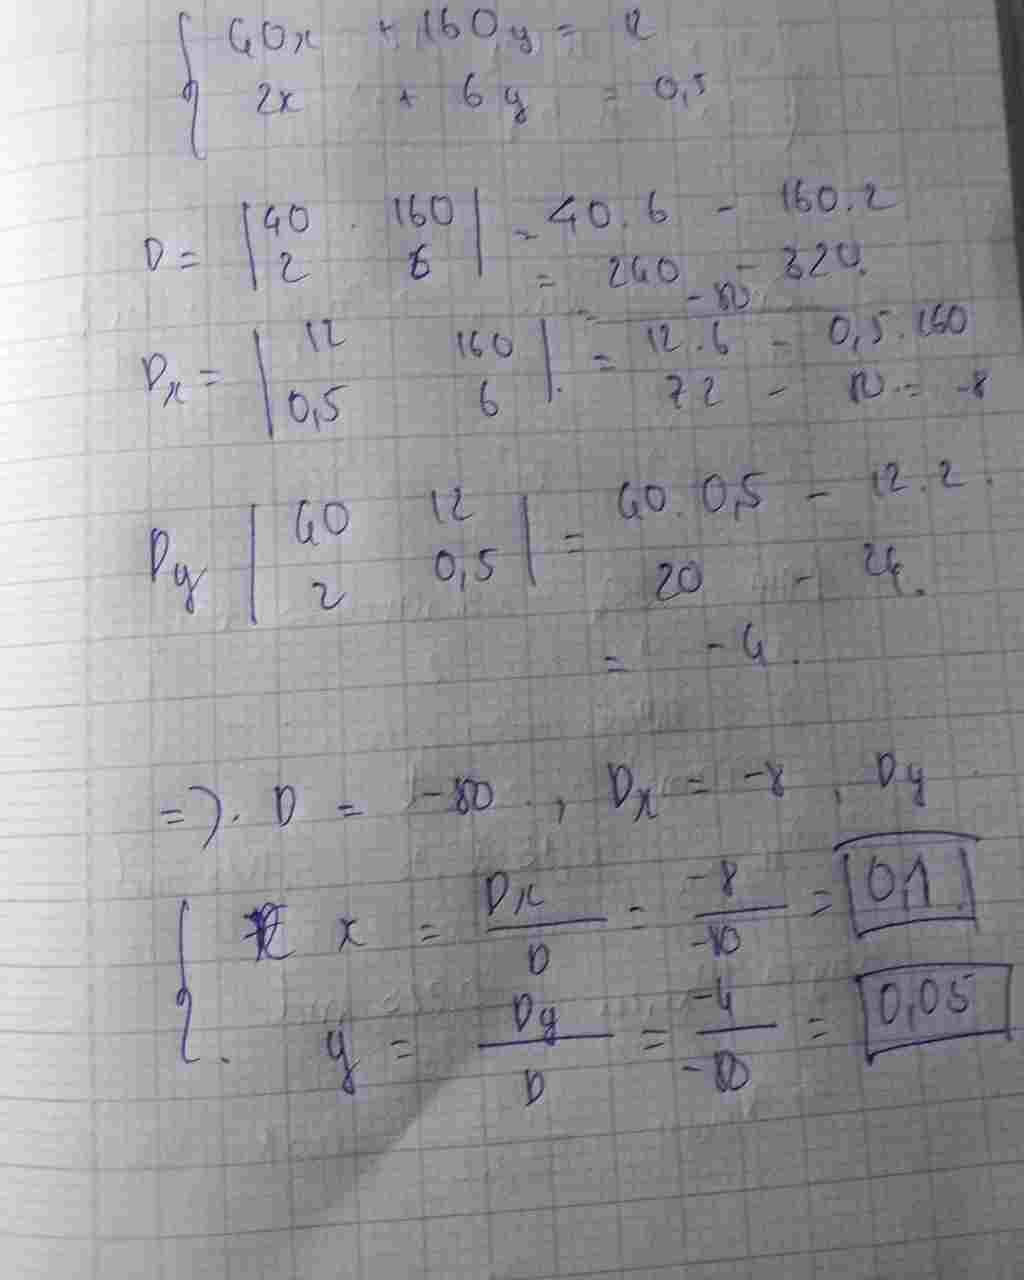 40x + 160y = 12
2x + 6y = 0,5
D = | 40 160 | = 40.6 - 160.2
| 2 6 | = 240 - 320
= -80
Dx = | 12 160 | = 12.6 - 0,5.160
| 0,5 6 | 72 - 80 = -8
Dy | 40 12 | = 40.0,5 - 12.2
| 2 0,5 | 20 - 24
= -4
=> D = -80, Dx = -8, Dy
x = Dx/D = -8/-80 = 0,1
y = Dy/D = -4/-80 = 0,05